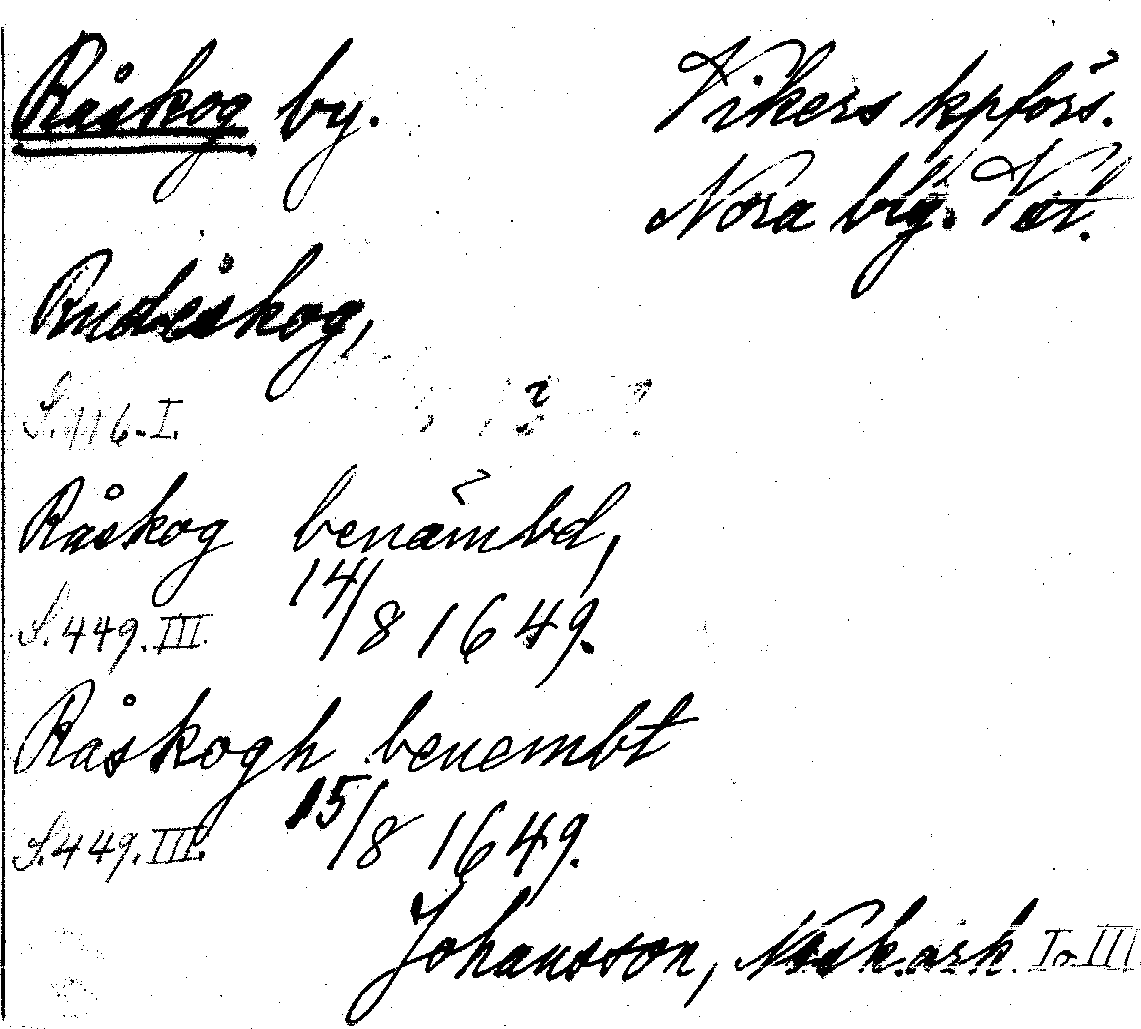 Råskog by.
Vikers kpförs.
Nora brg. Vstl.
Rudåskog,
S. 116. I.
Råskog benämbd,
S. 449. III. 14/8 1649.
Råskogh benembt
S. 449. III. 15/8 1649.
Johansson, Nosk. ark. I o. III